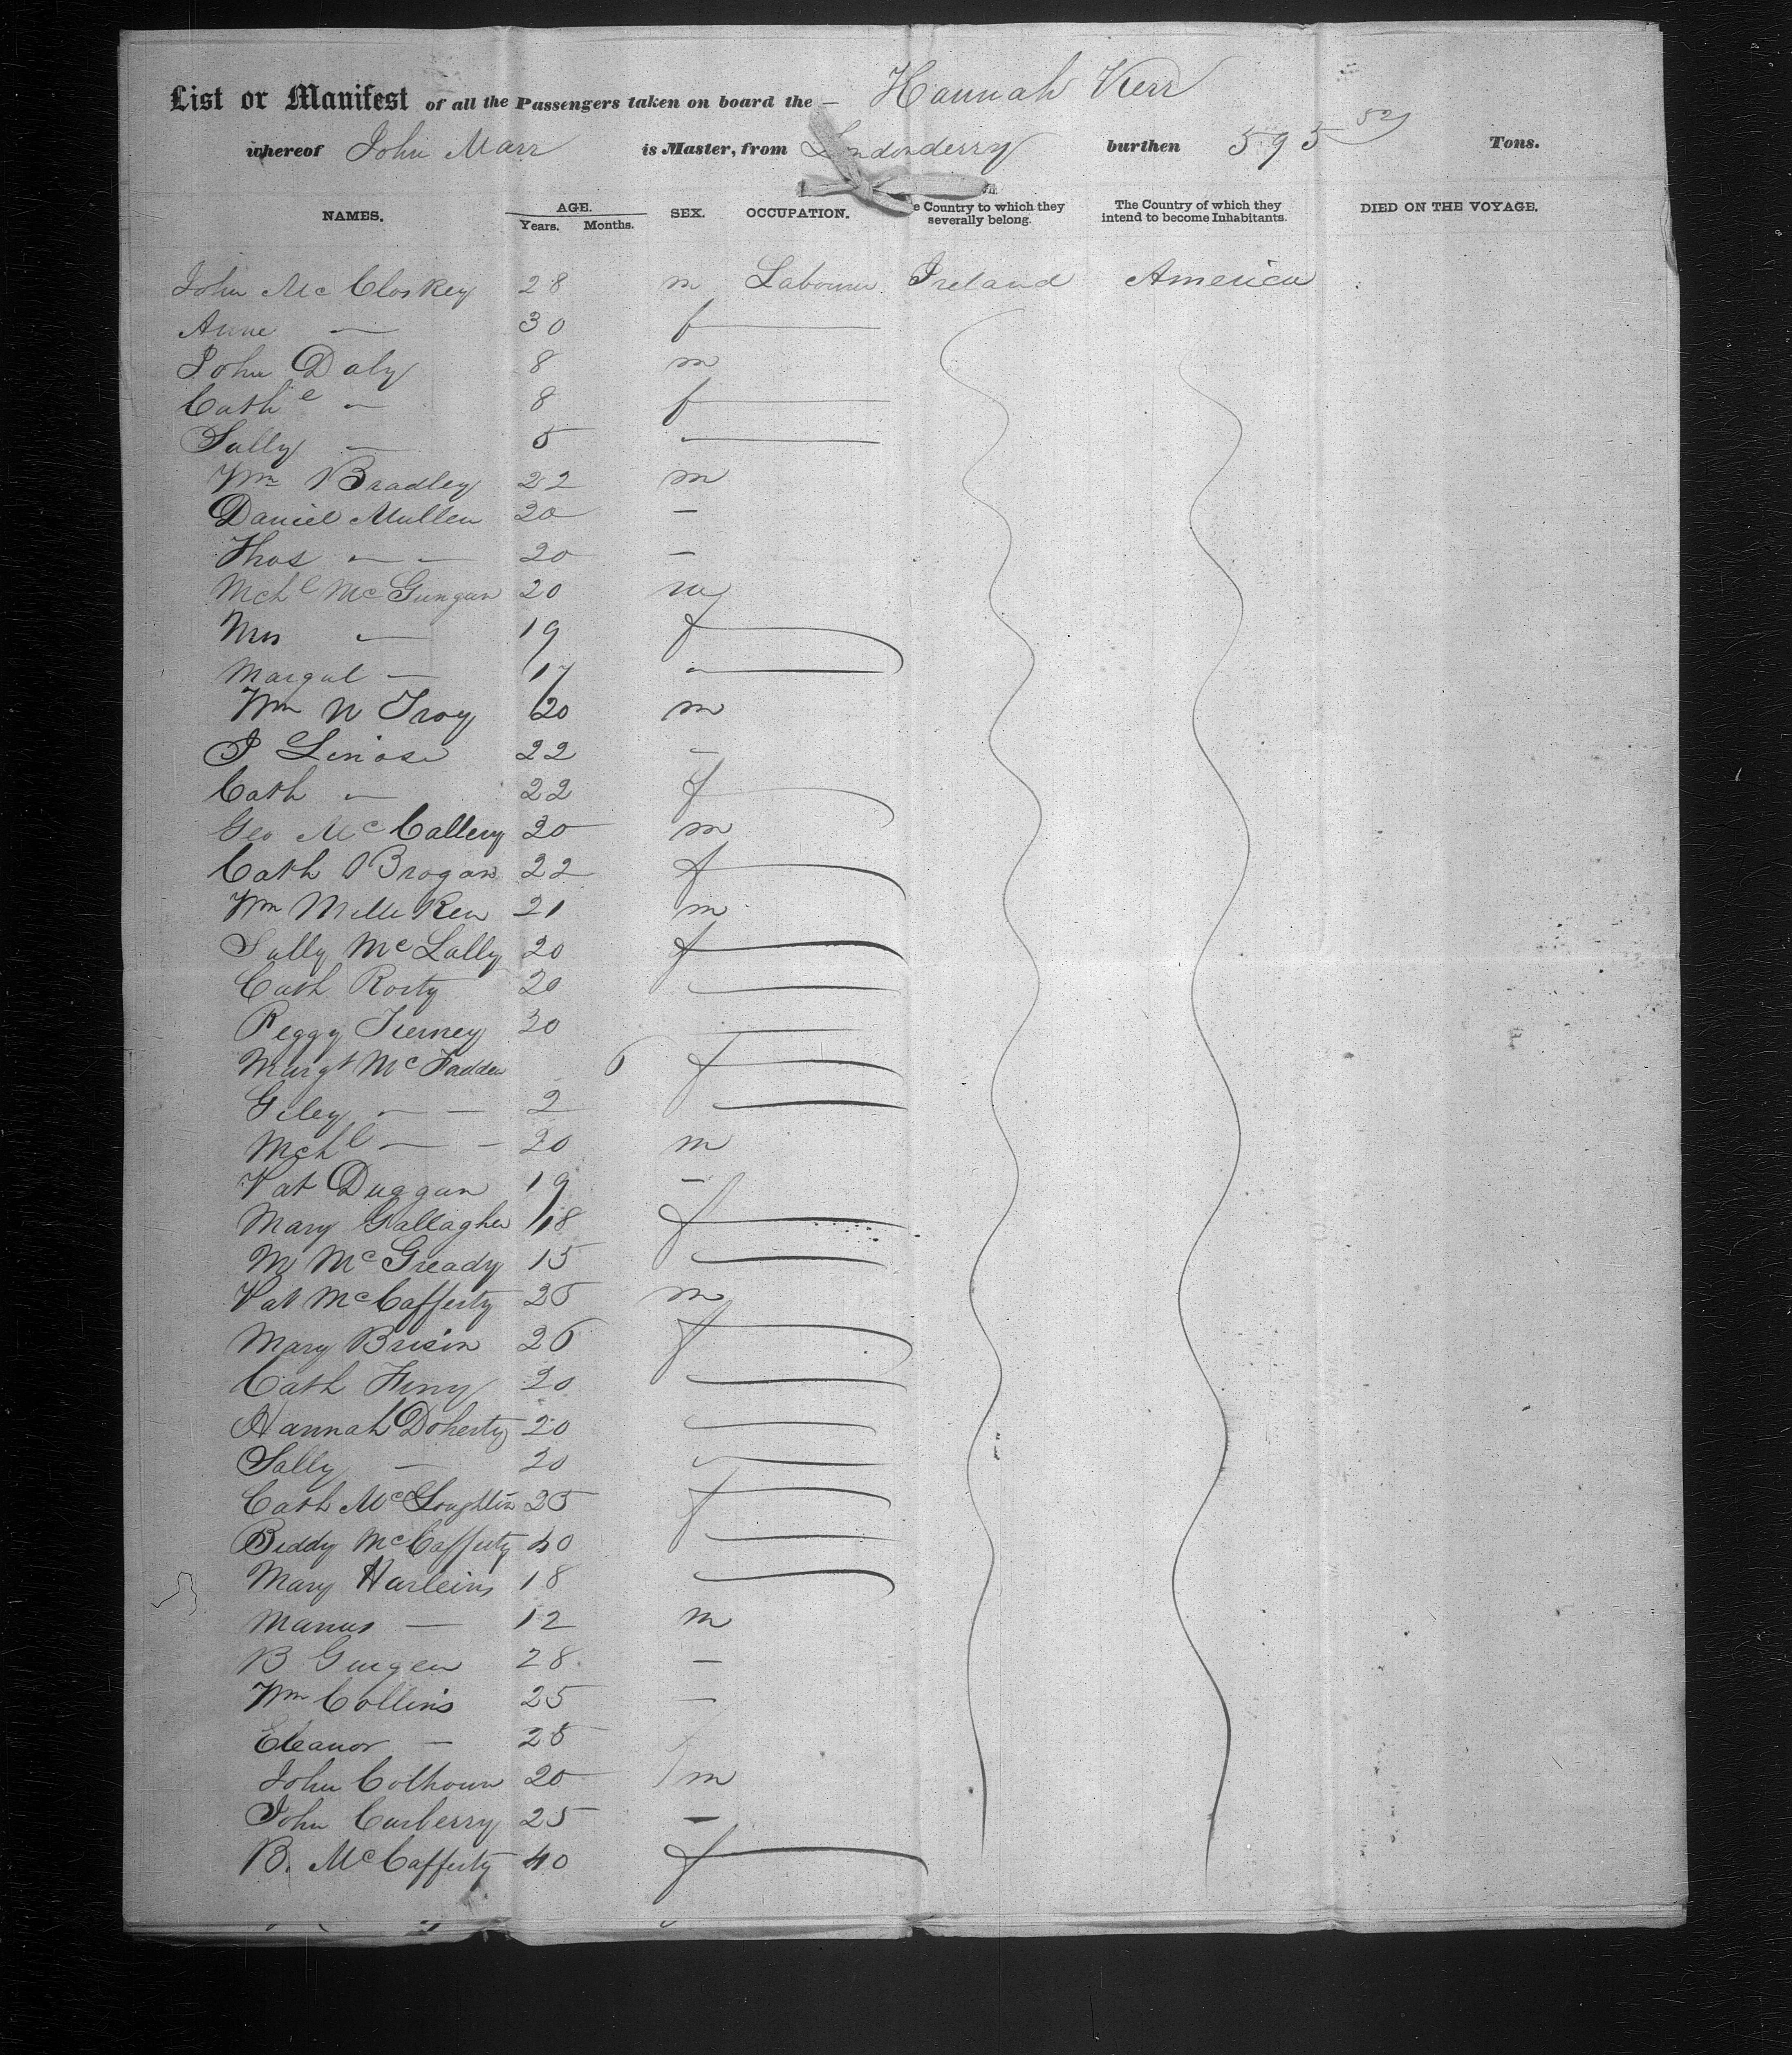 List or Manifest of all the Passengers taken on board the — Hannah Kerr
whereof John Marr is Master, from Londonderry burthen 595 52 Tons.
NAMES. AGE. Years. Months. SEX. OCCUPATION. e Country to which they severally belong. The Country of which they intend to become Inhabitants. DIED ON THE VOYAGE.
John McCloskey 28 m Labourer Ireland America
Anne — 30 f
John Daly 8 m
Cathe — 8 f
Sally — 5 "
Wm Bradley 22 m
Daniel Mullen 20 —
Thos — — 20 —
Mchl McGungan 20 m
Mrs — 19 f
Margal — 17 "
Wm N Troy 20 m
J 22 —
Cath — 22 f
Geo McCallery 20 m
Cath Brogan 22 f
Wm Milliken 21 m
Sally McLally 20 f
Cath Rorty 20
Peggy Tierney 20
Margt McFadden 6 f
Giley — — 2
Mchl — — 20 m
Pat Duggan 19 —
Mary Gallagher 18 f
M McGready 15
Pat McCafferty 25 m
Mary Brisin 26 f
Cath Feny 20
Hannah Doherty 20
Sally — 20
Cath McLoughlin 25 f
Biddy McCafferty 40
Mary Harleins 18
Manus — 12 m
B Gurgen 28 —
Wm Collins 25 —
Eleanor — 25
John Colhoun 20 m
John Carberry 25 —
B. McCafferty 40 f